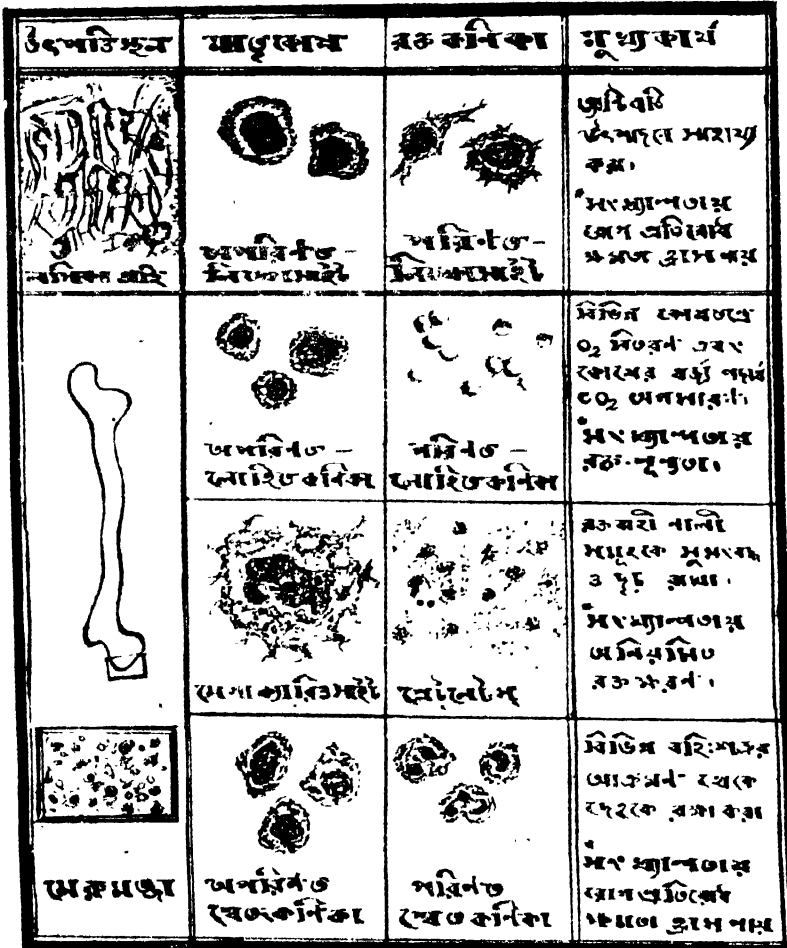 উৎপত্তিস্থল
মাতৃকোষ
রক্ত কনিকা
মুখ্যকার্য
লসিকা গ্রন্থি
অপরিণত –
লিম্ফোসাইট
পরিণত –
লিম্ফোসাইট
এন্টিবডি
উৎপাদনে সাহায্য
করা।
*সংখ্যাল্পতায়
রোগ প্রতিরোধ
ক্ষমতা হ্রাস পায়
অপরিণত –
লোহিতকণিকা
পরিণত –
লোহিতকণিকা
বিভিন্ন কোষতন্ত্রে
O₂ বিতরণ এবং
কোষের বর্জ্য পদার্থ
CO₂ অপসারণ।
*সংখ্যাল্পতায়
রক্ত-শূন্যতা।
মেগাক্যারিওসাইট
প্লেটলেটস্
রক্তবাহী নালী
সমূহকে সুসংবদ্ধ
ও দৃঢ় রাখা।
*সংখ্যাল্পতায়
অনিয়মিত
রক্ত ক্ষরণ।
মেরুমজ্জা
অপরিণত
শ্বেতকণিকা
পরিণত
শ্বেত কণিকা
বিভিন্ন বহিঃশত্রুর
আক্রমণ থেকে
দেহকে রক্ষা করা
*সংখ্যাল্পতায়
রোগপ্রতিরোধ
ক্ষমতা হ্রাস পায়